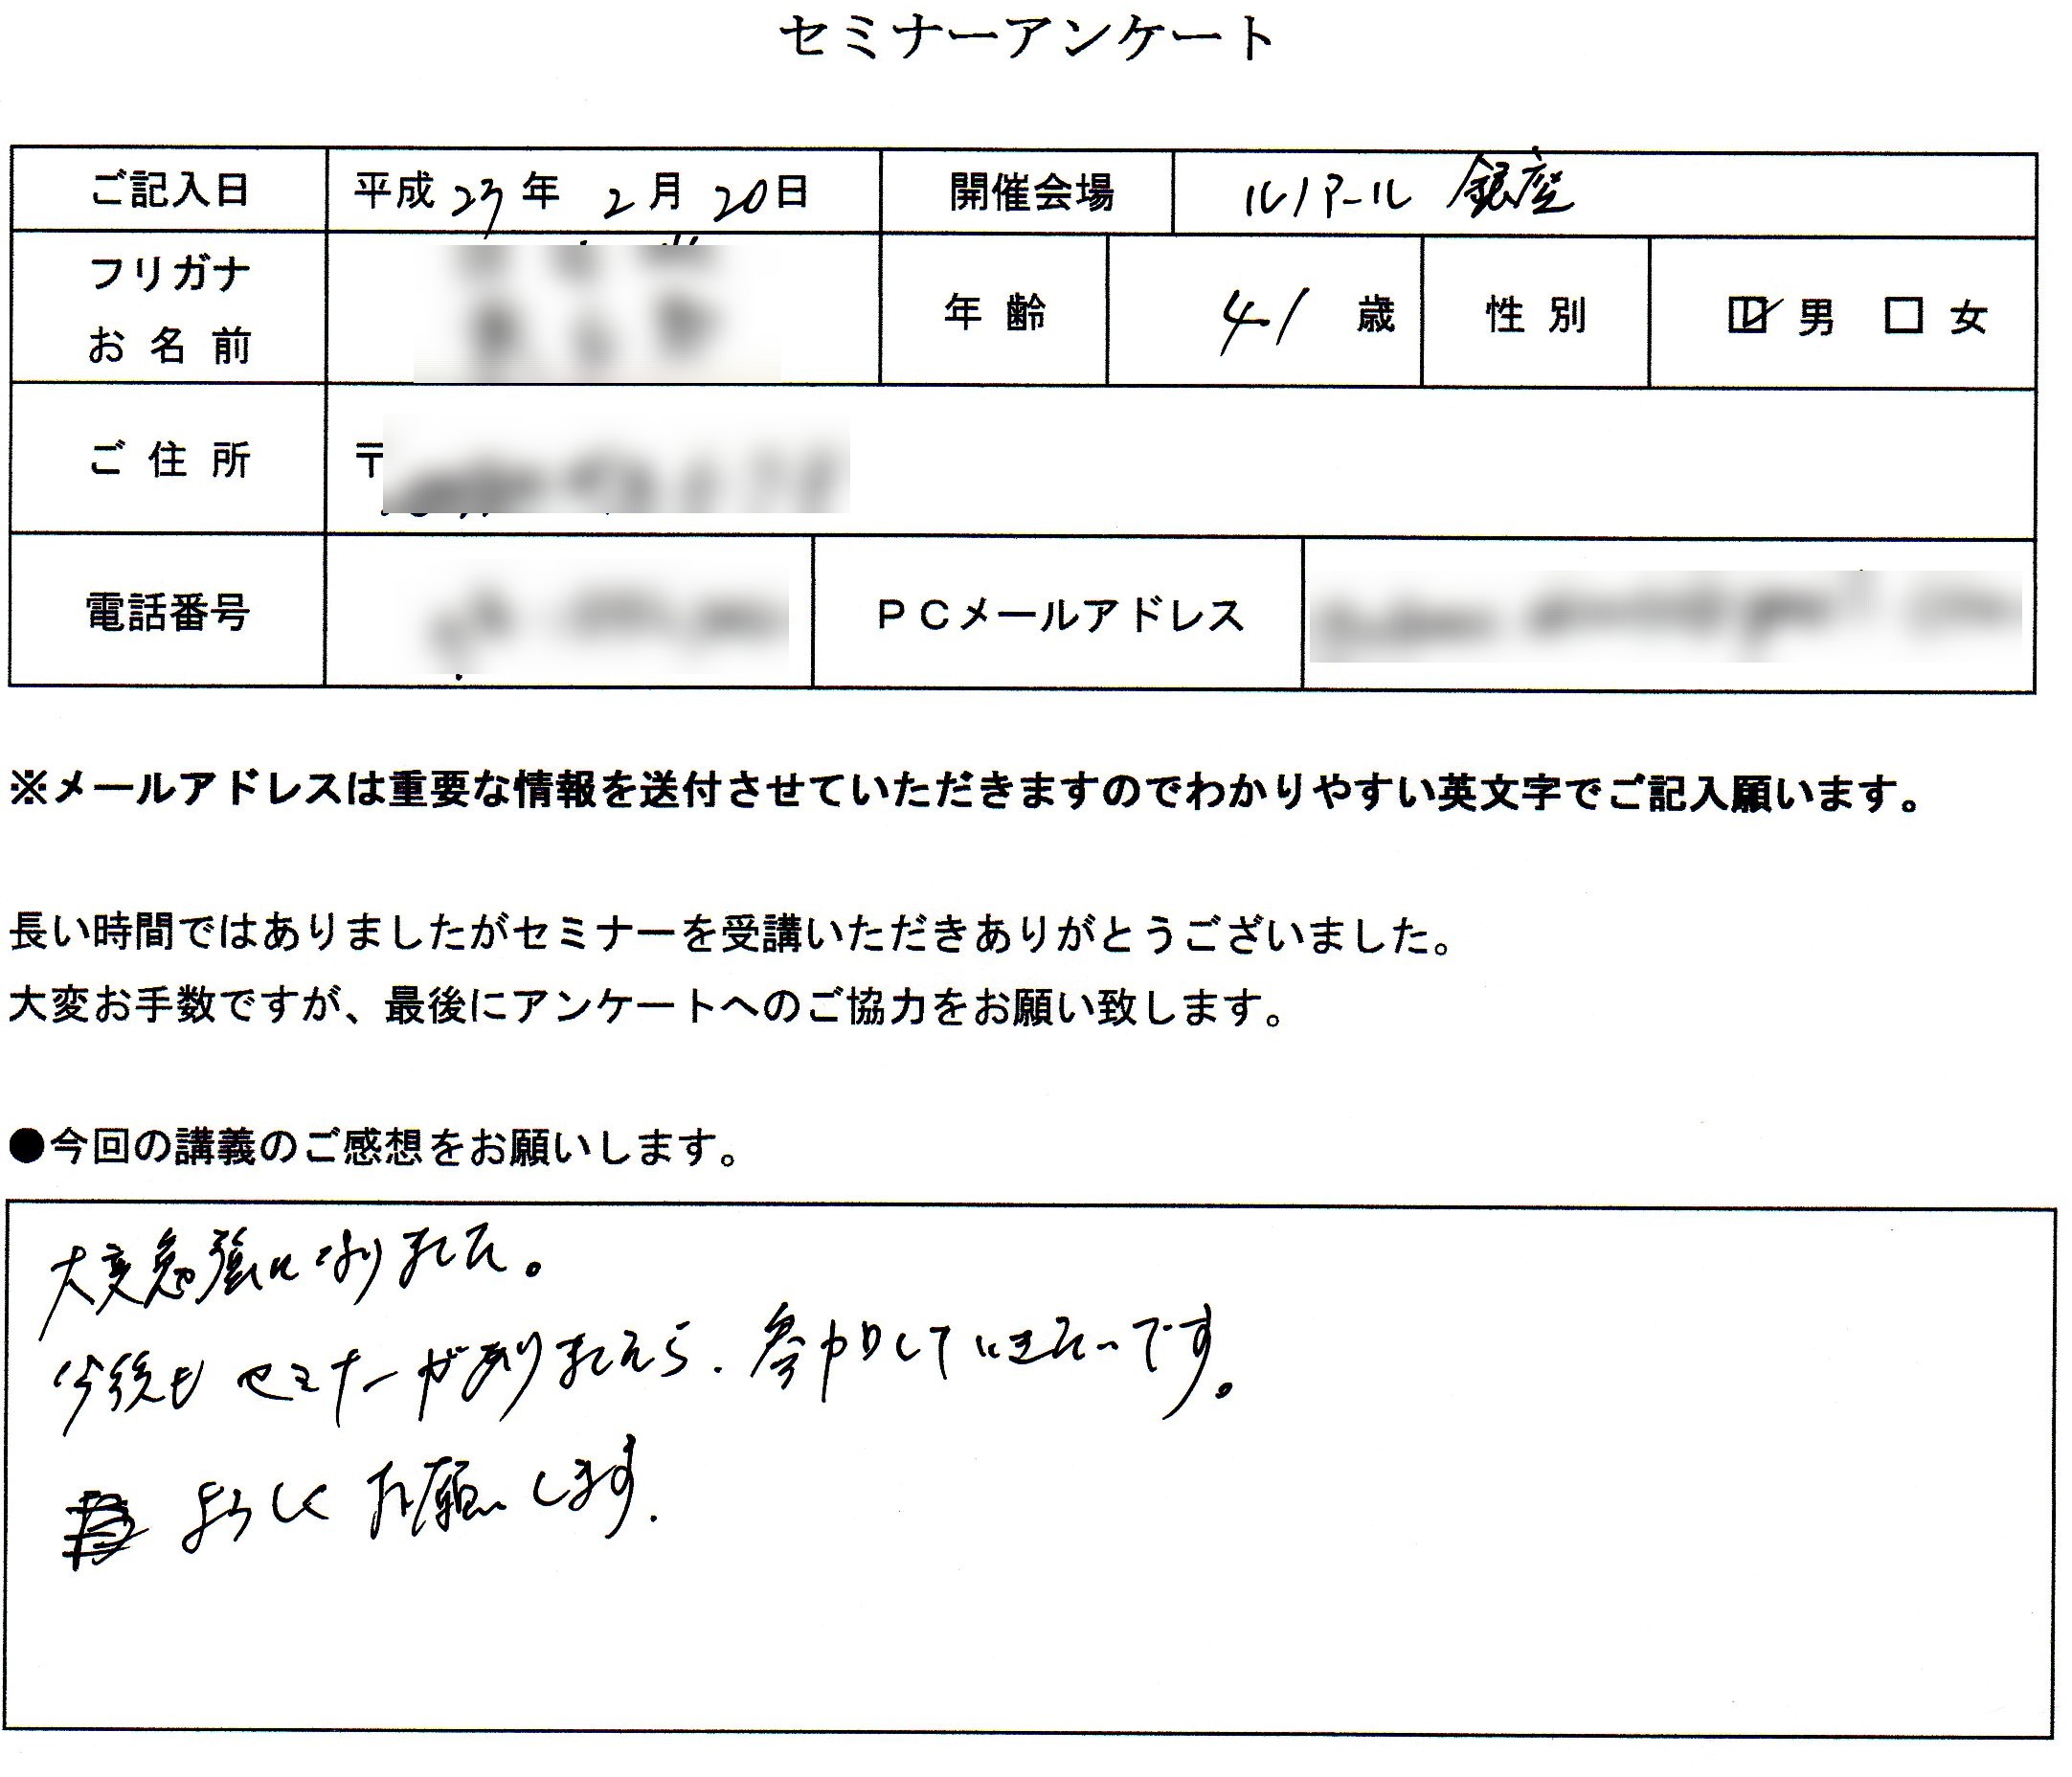 セミナーアンケート
ご記入日 平成27年 2月20日 開催会場 ルノアール 銀座
フリガナ
お名前 年齢 41 歳 性別 ☑男 □女
ご住所 〒
電話番号 PCメールアドレス
※メールアドレスは重要な情報を送付させていただきますのでわかりやすい英文字でご記入願います。
長い時間ではありましたがセミナーを受講いただきありがとうございました。
大変お手数ですが、最後にアンケートへのご協力をお願い致します。
●今回の講義のご感想をお願いします。
大変勉強になりました。
今後もセミナーがありましたら、参加していきたいです。
よろしくお願いします.